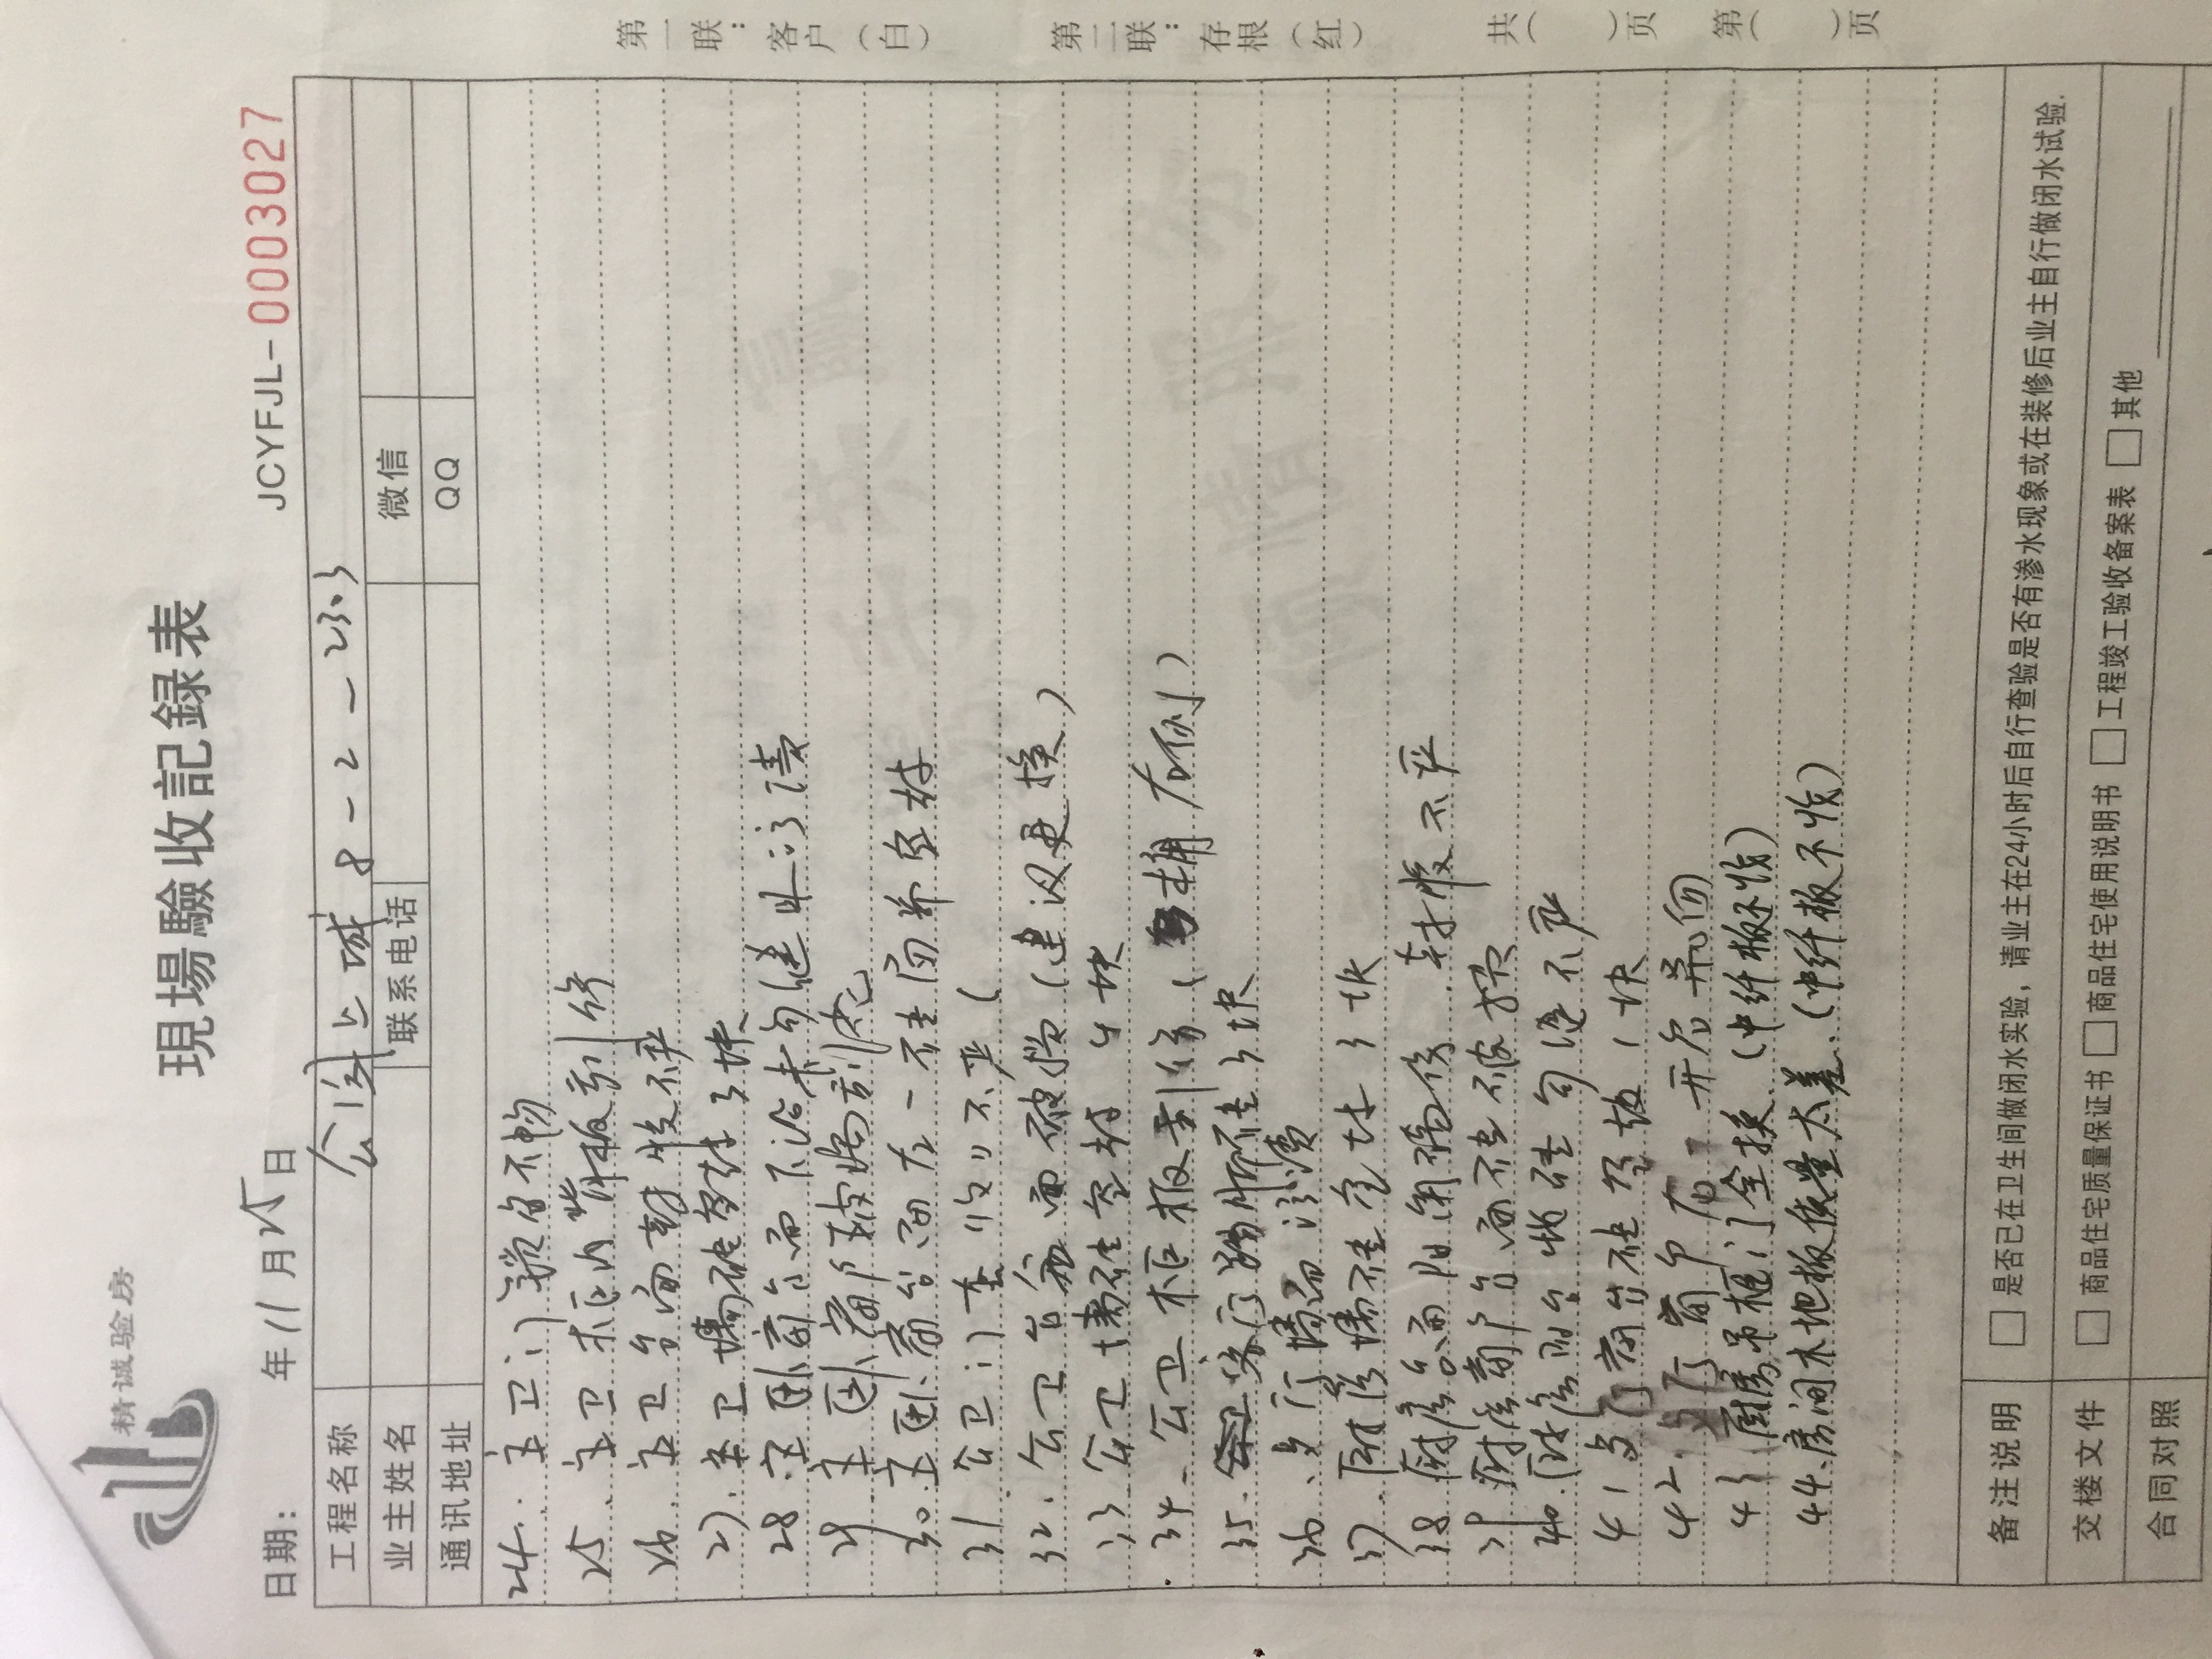 精诚验房
現場驗收記録表
日期： 年11月25日 JCYFJL-0003027
工程名称 公园上城 8-2-2303
业主姓名 联系电话 微信
通讯地址 QQ
24. 主卫门锁启不畅
25. 主卫柜内背板刮伤
26. 主卫台面封胶不严
27. 主卫墙砖空鼓3块
28 主卧窗台面下沿未勾缝且污渍
29. 主卧窗户玻璃刮花
30. 主卧窗台面左一砖局部空鼓
31. 公卫门套收口不严(
32. 公卫台盆面破损(建议更换)
33. 公卫墙砖空鼓 4块
34. 公卫柜板刮伤(桶右侧)
35. 客厅踢脚砖3块
36. 客厅墙面污渍
37. 厨房墙砖空鼓3块
38 厨房台面阳角磕伤.封胶不严
39 厨房窗户台面砖破损
40. 厨房阳台地砖勾缝不严
41 客厅窗台砖空鼓1块
42. 客厅窗户右一开启异响
43. 厨房吊柜门全换.(中纤板不收)
44. 房间木地板质量太差.(中纤板不收)
备注说明 □ 是否已在卫生间做闭水实验，请业主在24小时后自行查验是否有渗水现象或在装修后业主自行做闭水试验.
交楼文件 □ 商品住宅质量保证书 □ 商品住宅使用说明书 □ 工程竣工验收备案表 □ 其他
合同对照
第一联：客户（白） 第二联：存根（红） 共（ ）页 第（ ）页